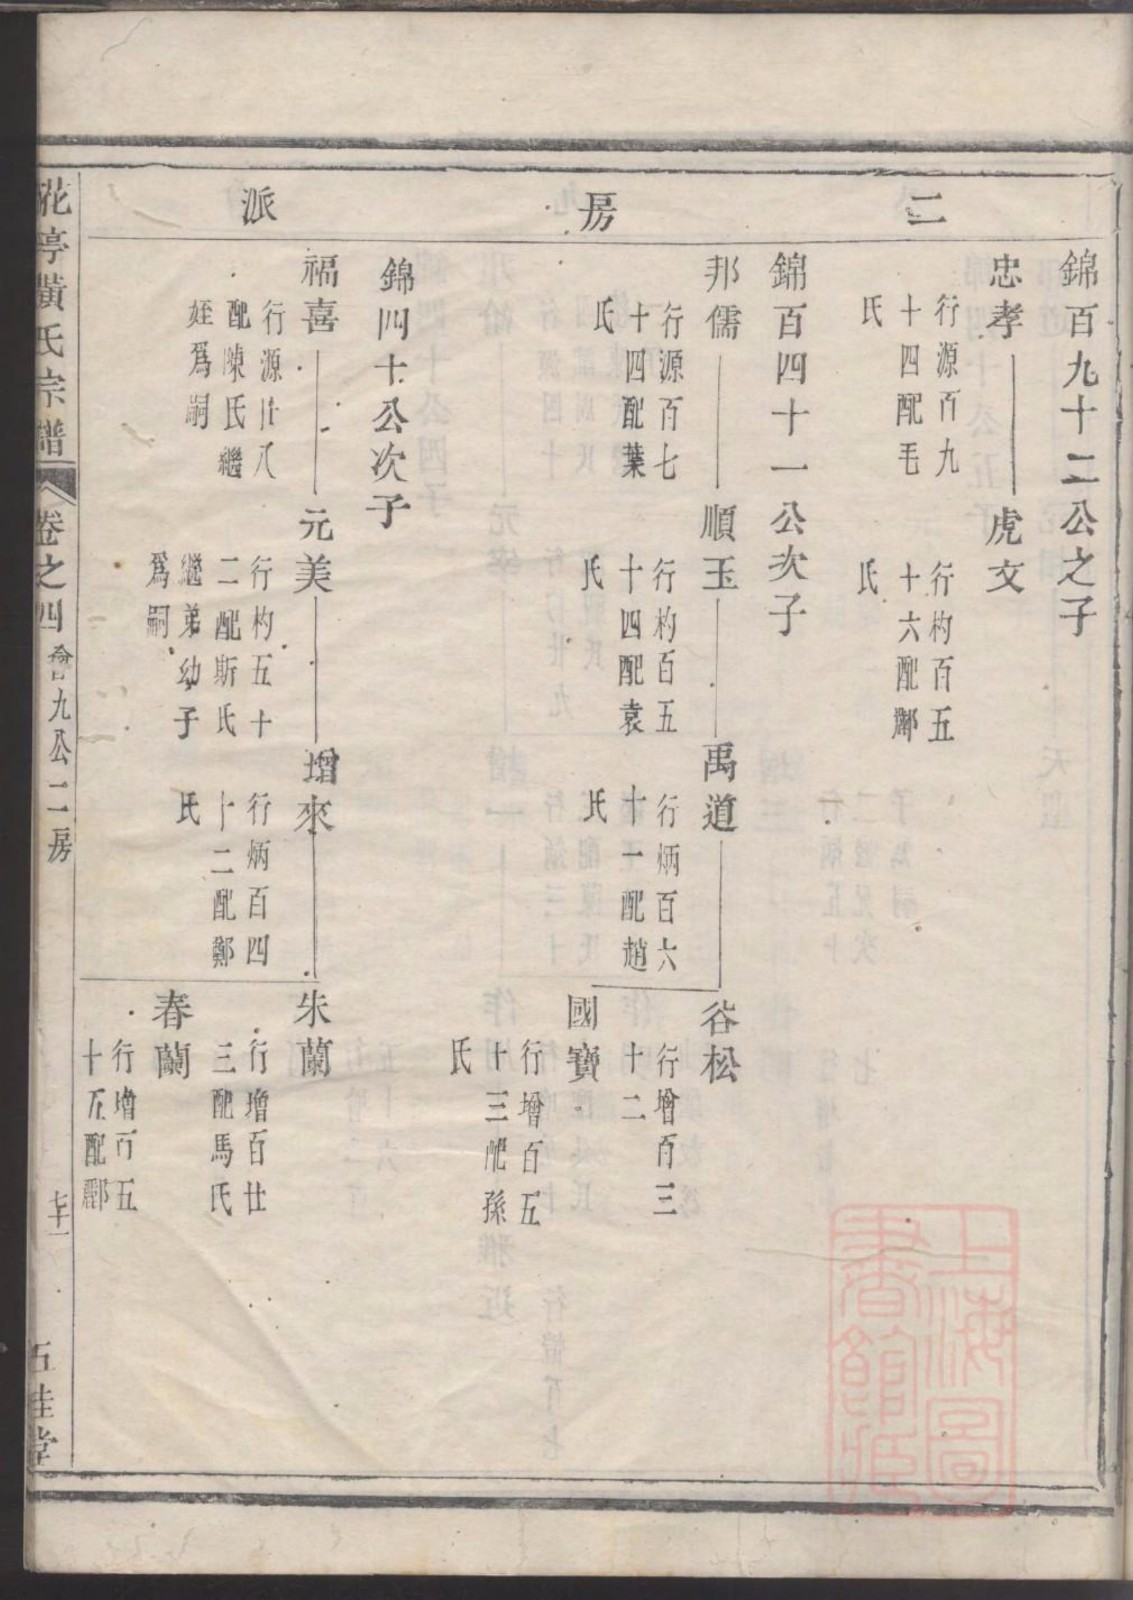 二房派
錦百九十二公之子
忠孝
行源百九
十四配毛
氏
虎文
行杓百五
十六配鄌
氏
錦百四十一公次子
邦儒
行源百七
十四配葉
氏
順玉
行杓百五
十四配袁
氏
禹道
行炳百六
十一配趙
氏
谷松
行增百三
十二
國寶
行增百五
十三配孫
氏
錦四十公次子
福喜
行源廿八
配陳氏繼
姪爲嗣
元美
行杓五十
二配斯氏
繼弟幼子
爲嗣
增來
行炳百四
十二配鄭
氏
朱蘭
行增百廿
三配馬氏
春蘭
行增百五
十五配酈
花亭黄氏宗譜
卷之四
會九公二房
七十一
五桂堂
上海圖
書館藏